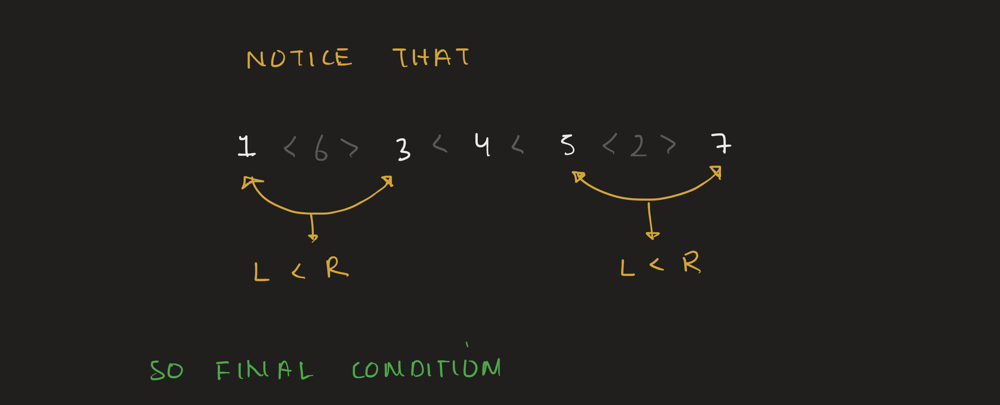 NOTICE THAT
1 < 6 > 3 < 4 < 5 < 2 > 7
L < R L < R
SO FINAL CONDITION